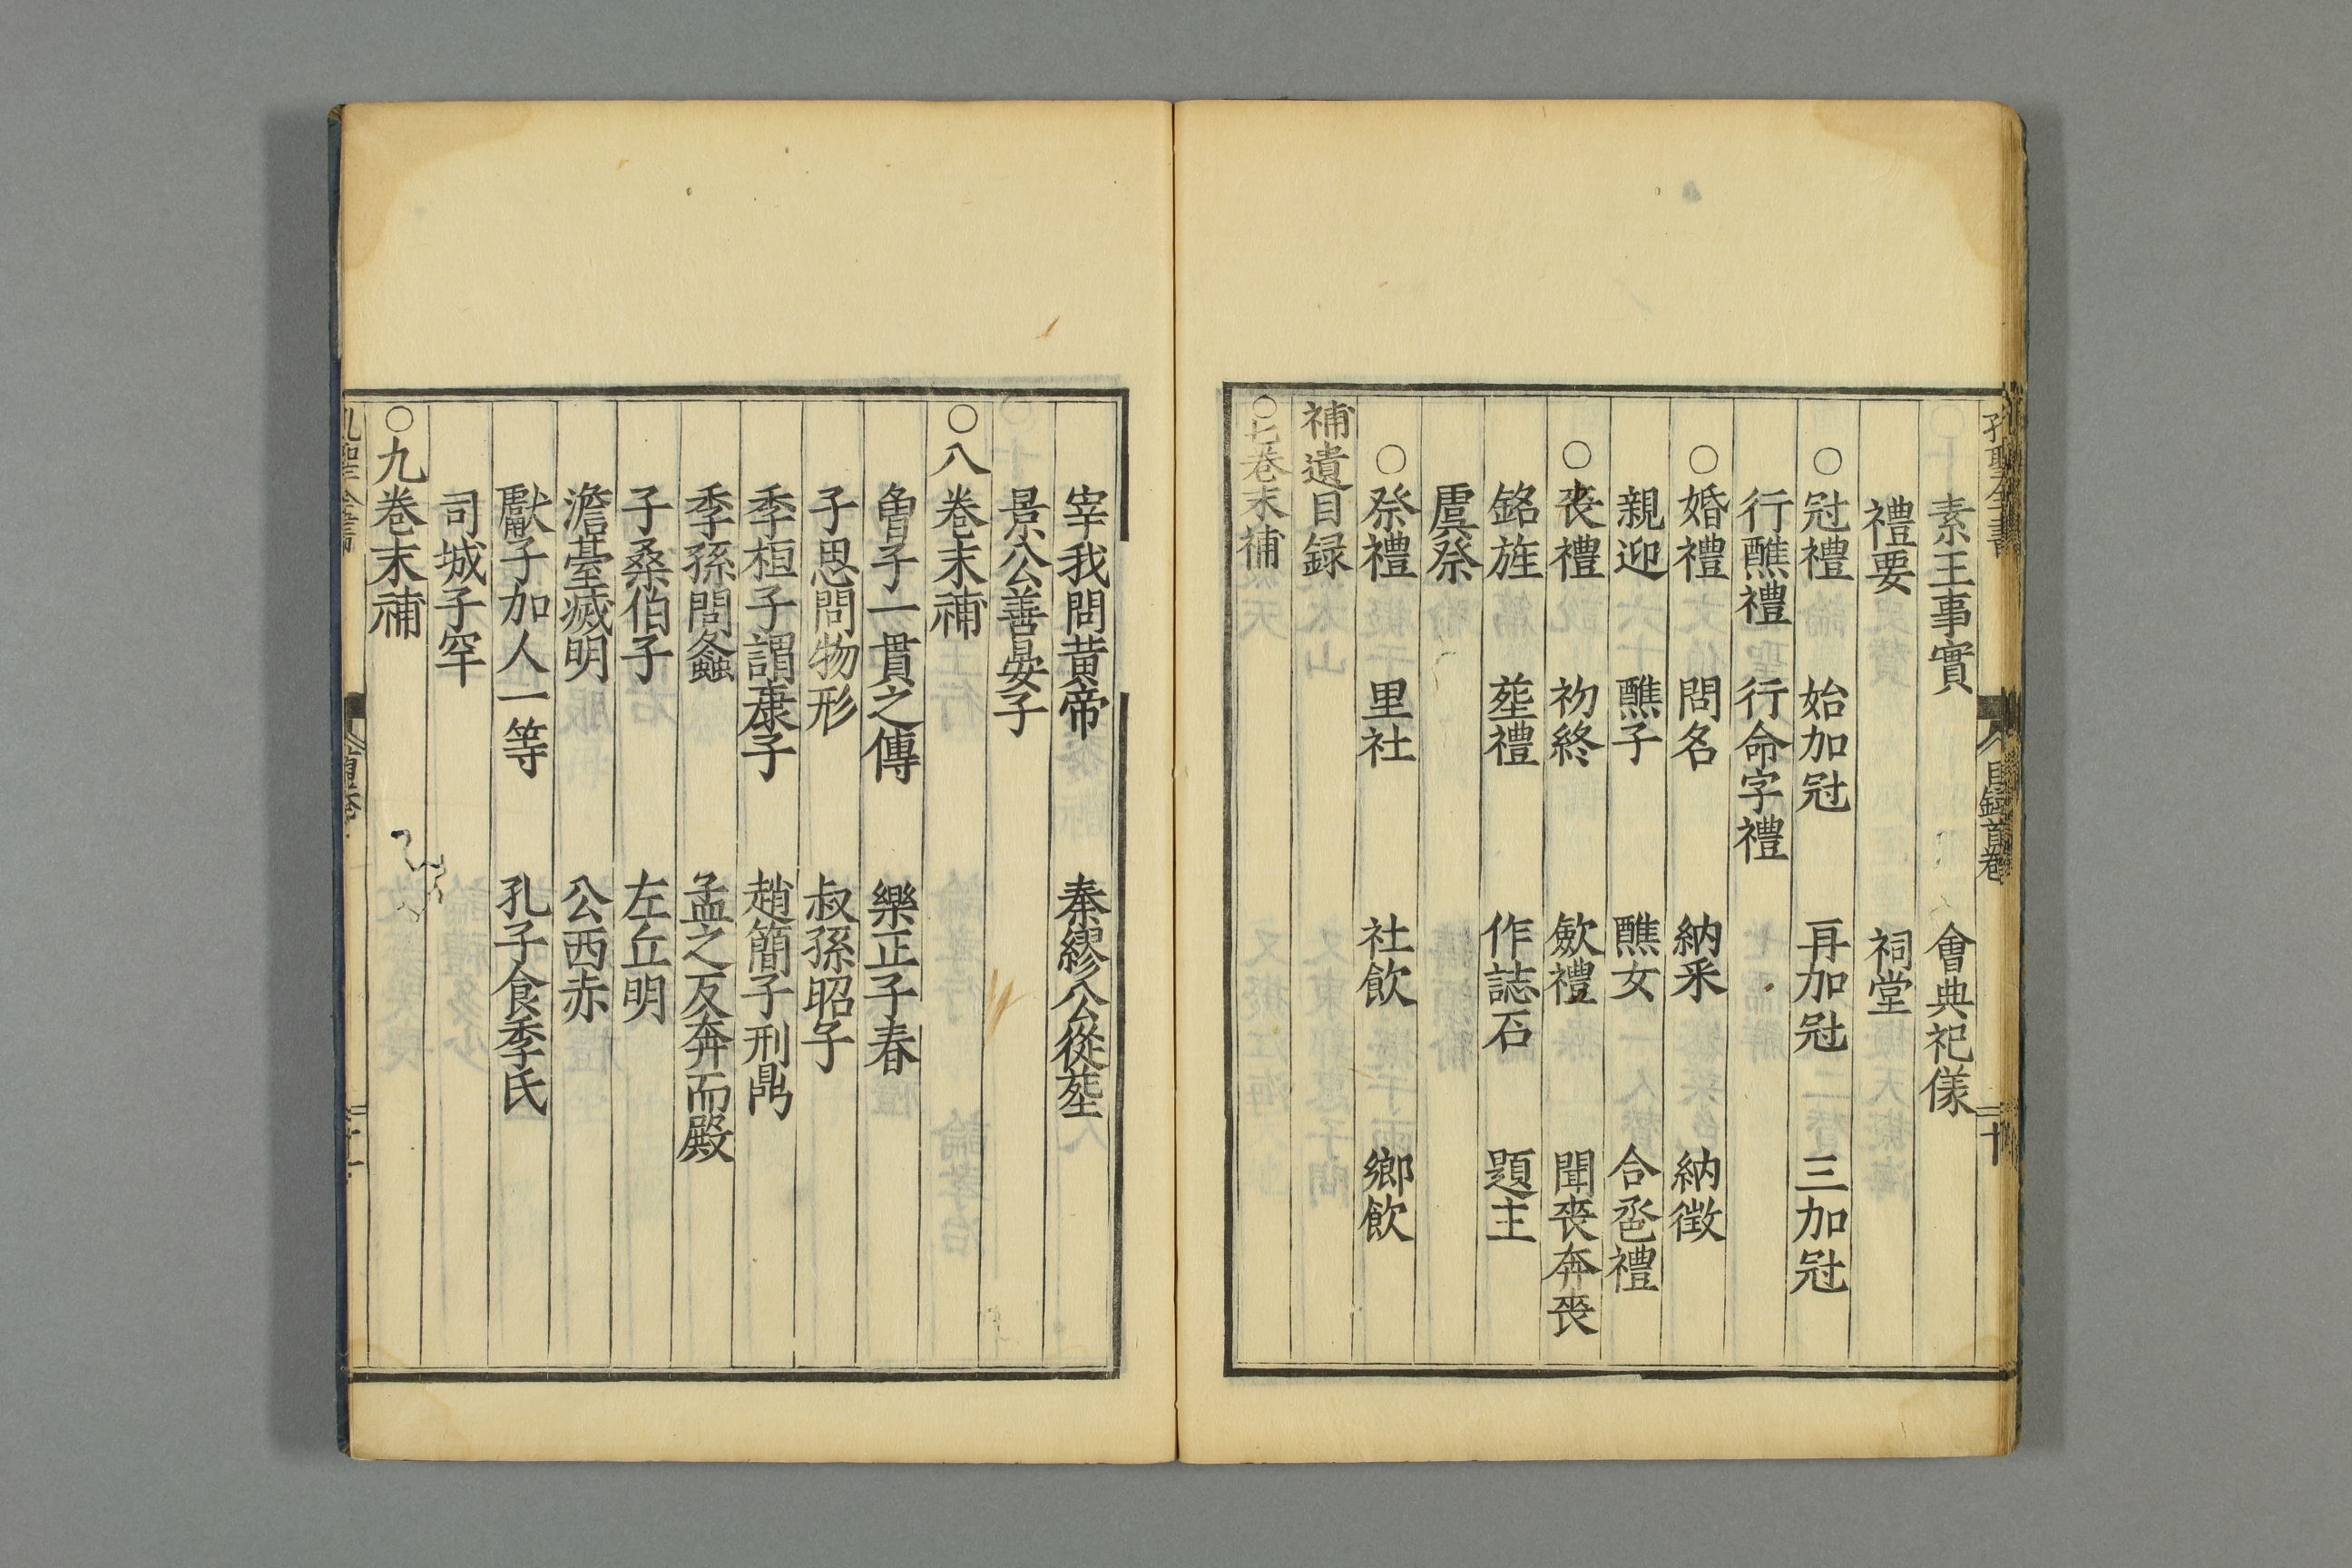 孔聖全書 目録首卷 二十
素王事實 會典祀儀
禮要 祠堂
○冠禮 始加冠 再加冠 三加冠
行醮禮 行命字禮
○婚禮 問名 納釆 納徴
親迎 醮子 醮女 合巹禮
○喪禮 初終 歛禮 聞喪奔喪
銘旌 塟禮 作誌石 題主
虞祭
○祭禮 里社 社飲 鄉飲
補遺目録
○七卷末補
宰我問黄帝 秦繆公從塟
景公善晏子
○八卷末補
曾子一貫之傳 樂正子春
子思問物形 叔孫昭子
季桓子謂康子 趙簡子刑鼎
季孫問螽 孟之反奔而殿
子桑伯子 左丘明
澹臺滅明 公西赤
獻子加人一等 孔子食季氏
司城子罕
○九卷末補